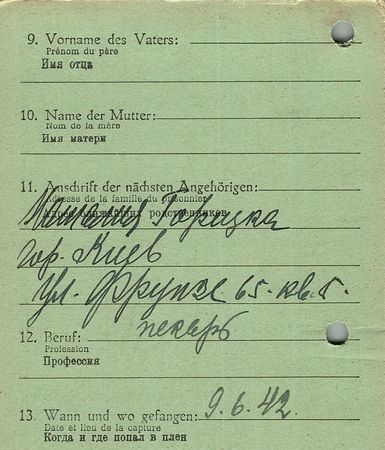 9. Vorname des Vaters:
Prénom du père
Имя отца
10. Name der Mutter:
Nom de la mère
Имя матери
11. Anschrift der nächsten Angehörigen:
Adresse de la famille du prisonnier
Адрес ближайших родственников
гор. Киев
ул. Фрунзе 65. кв. 5.
пекарь
12. Beruf:
Profession
Профессия
13. Wann und wo gefangen: 9.6.42.
Date et lieu de la capture
Когда и где попал в плен